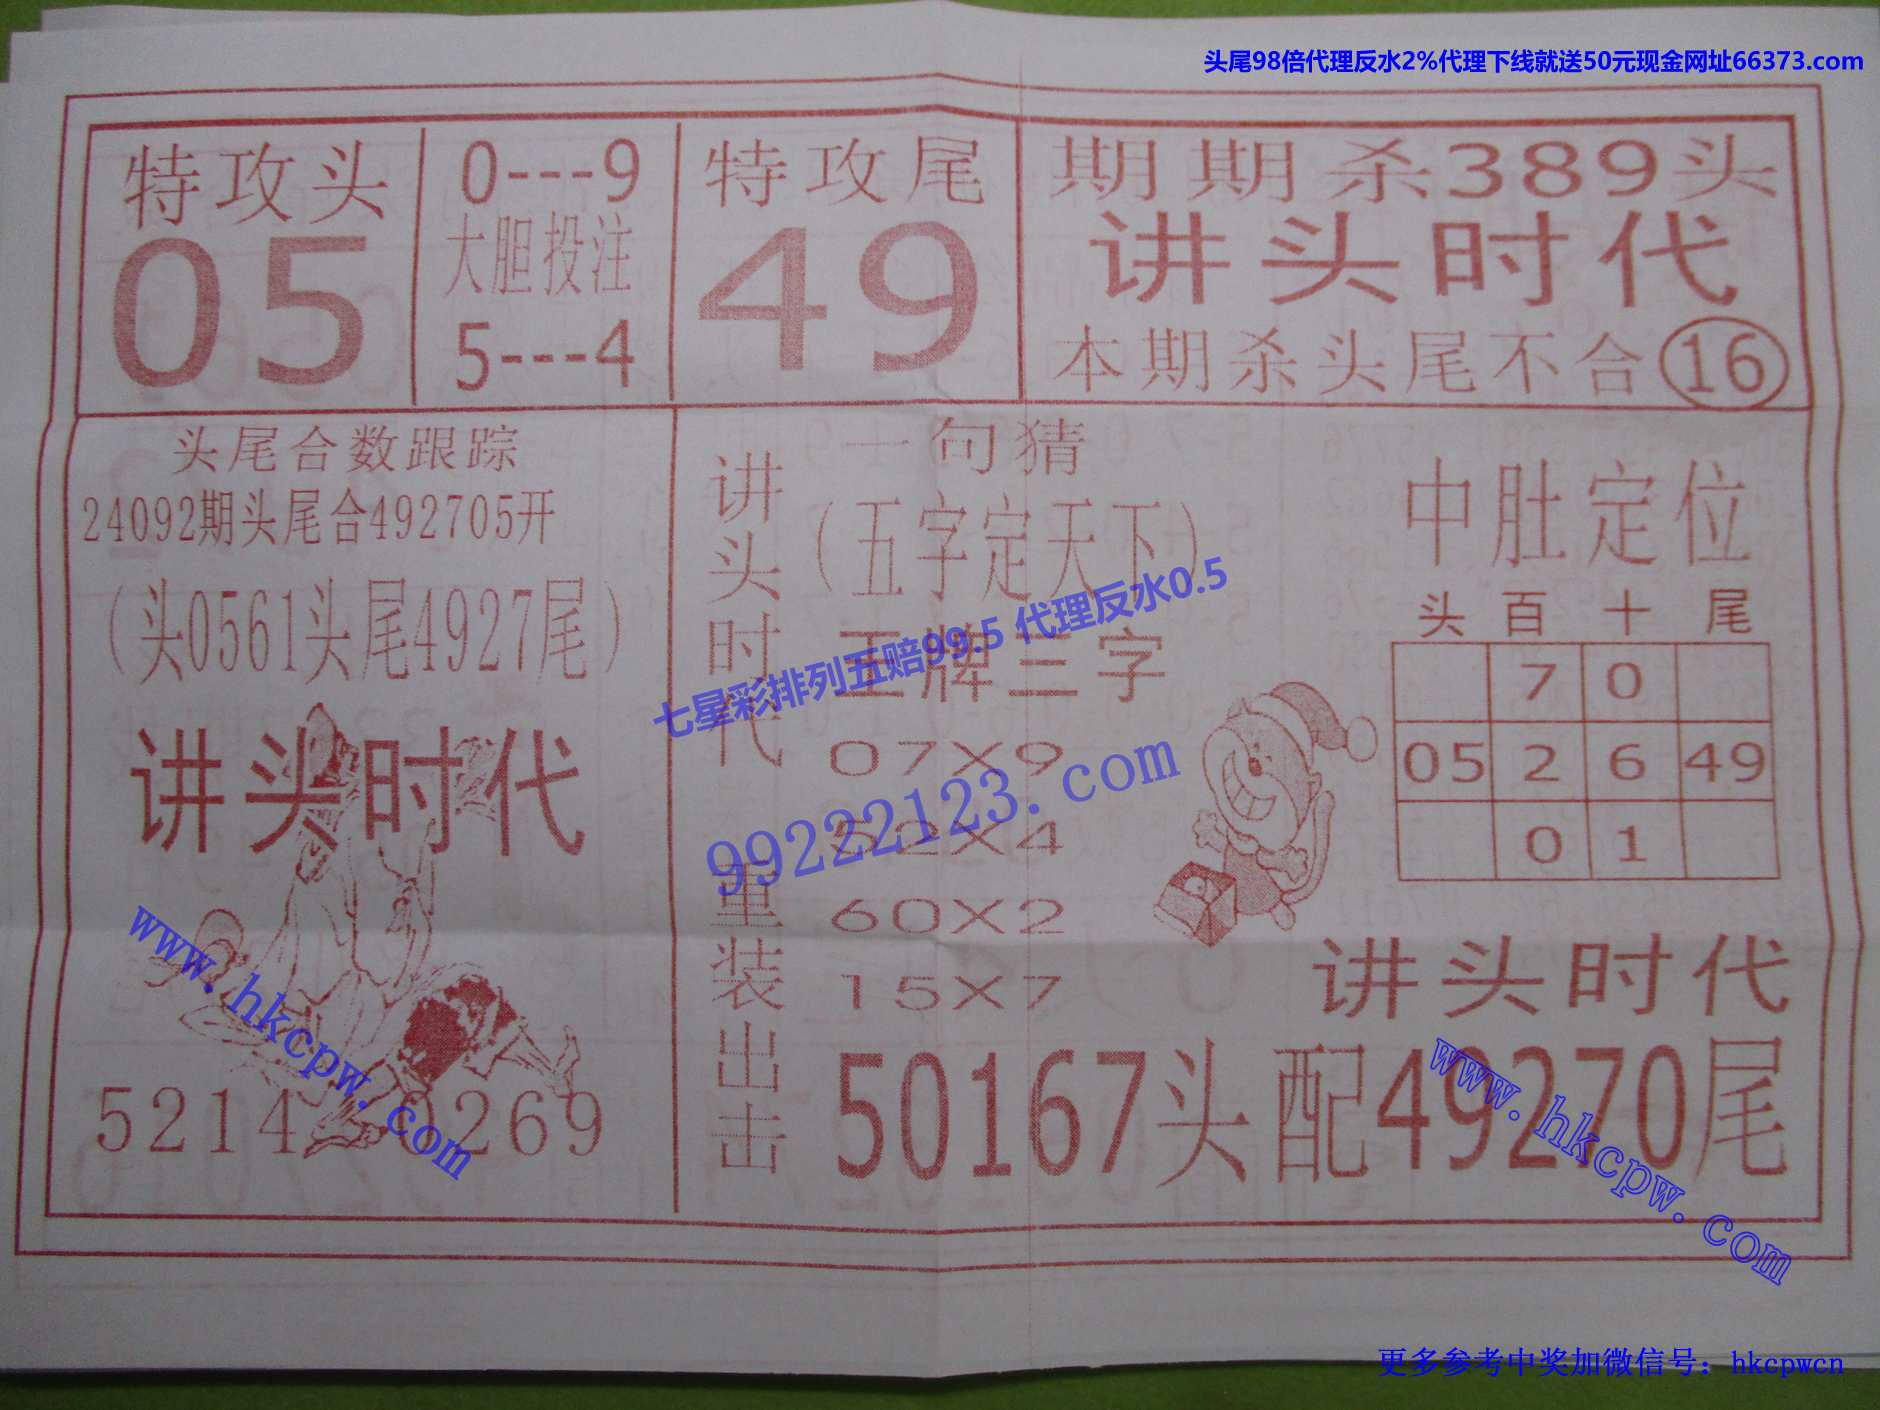 头尾98倍代理反水2%代理下线就送50元现金网址66373.com
特攻头
05
0---9
大胆投注
5---4
特攻尾
49
期期杀389头
讲头时代
本期杀头尾不合16
头尾合数跟踪
24092期头尾合492705开
(头0561头尾4927尾)
讲头时代
5214 269
讲头时代重装出击
一句猜
(五字定天下)
王牌三字
07X9
52X4
60X2
15X7
中肚定位
头 百 十 尾
7 0
05 2 6 49
0 1
讲头时代
50167头配49270尾
七星彩排列五赔99.5 代理反水0.5
99222123.com
www.hkcpw.com
www.hkcpw.com
更多参考中奖加微信号：hkcpwcn